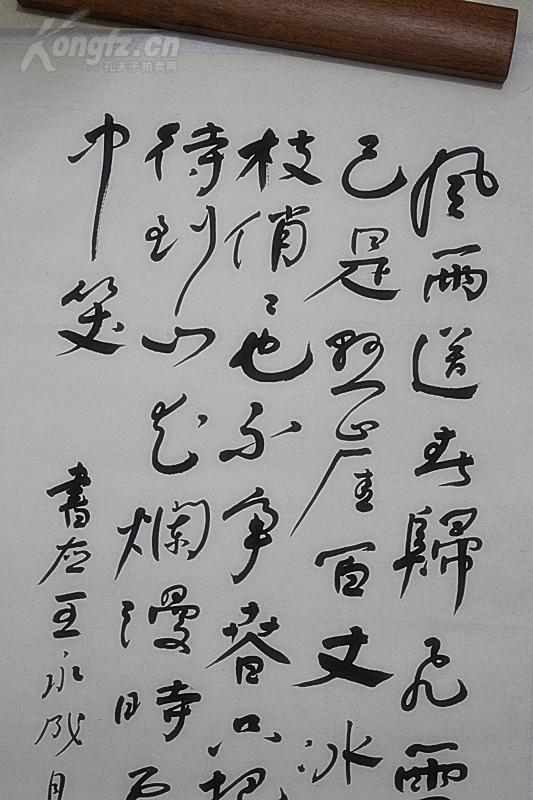 Kongfz.cn
孔夫子拍卖网
風雨送春歸飛雪
已是懸崖百丈冰
枝俏〻也不争春只把
待到山花爛漫時
中笑
書应王永成